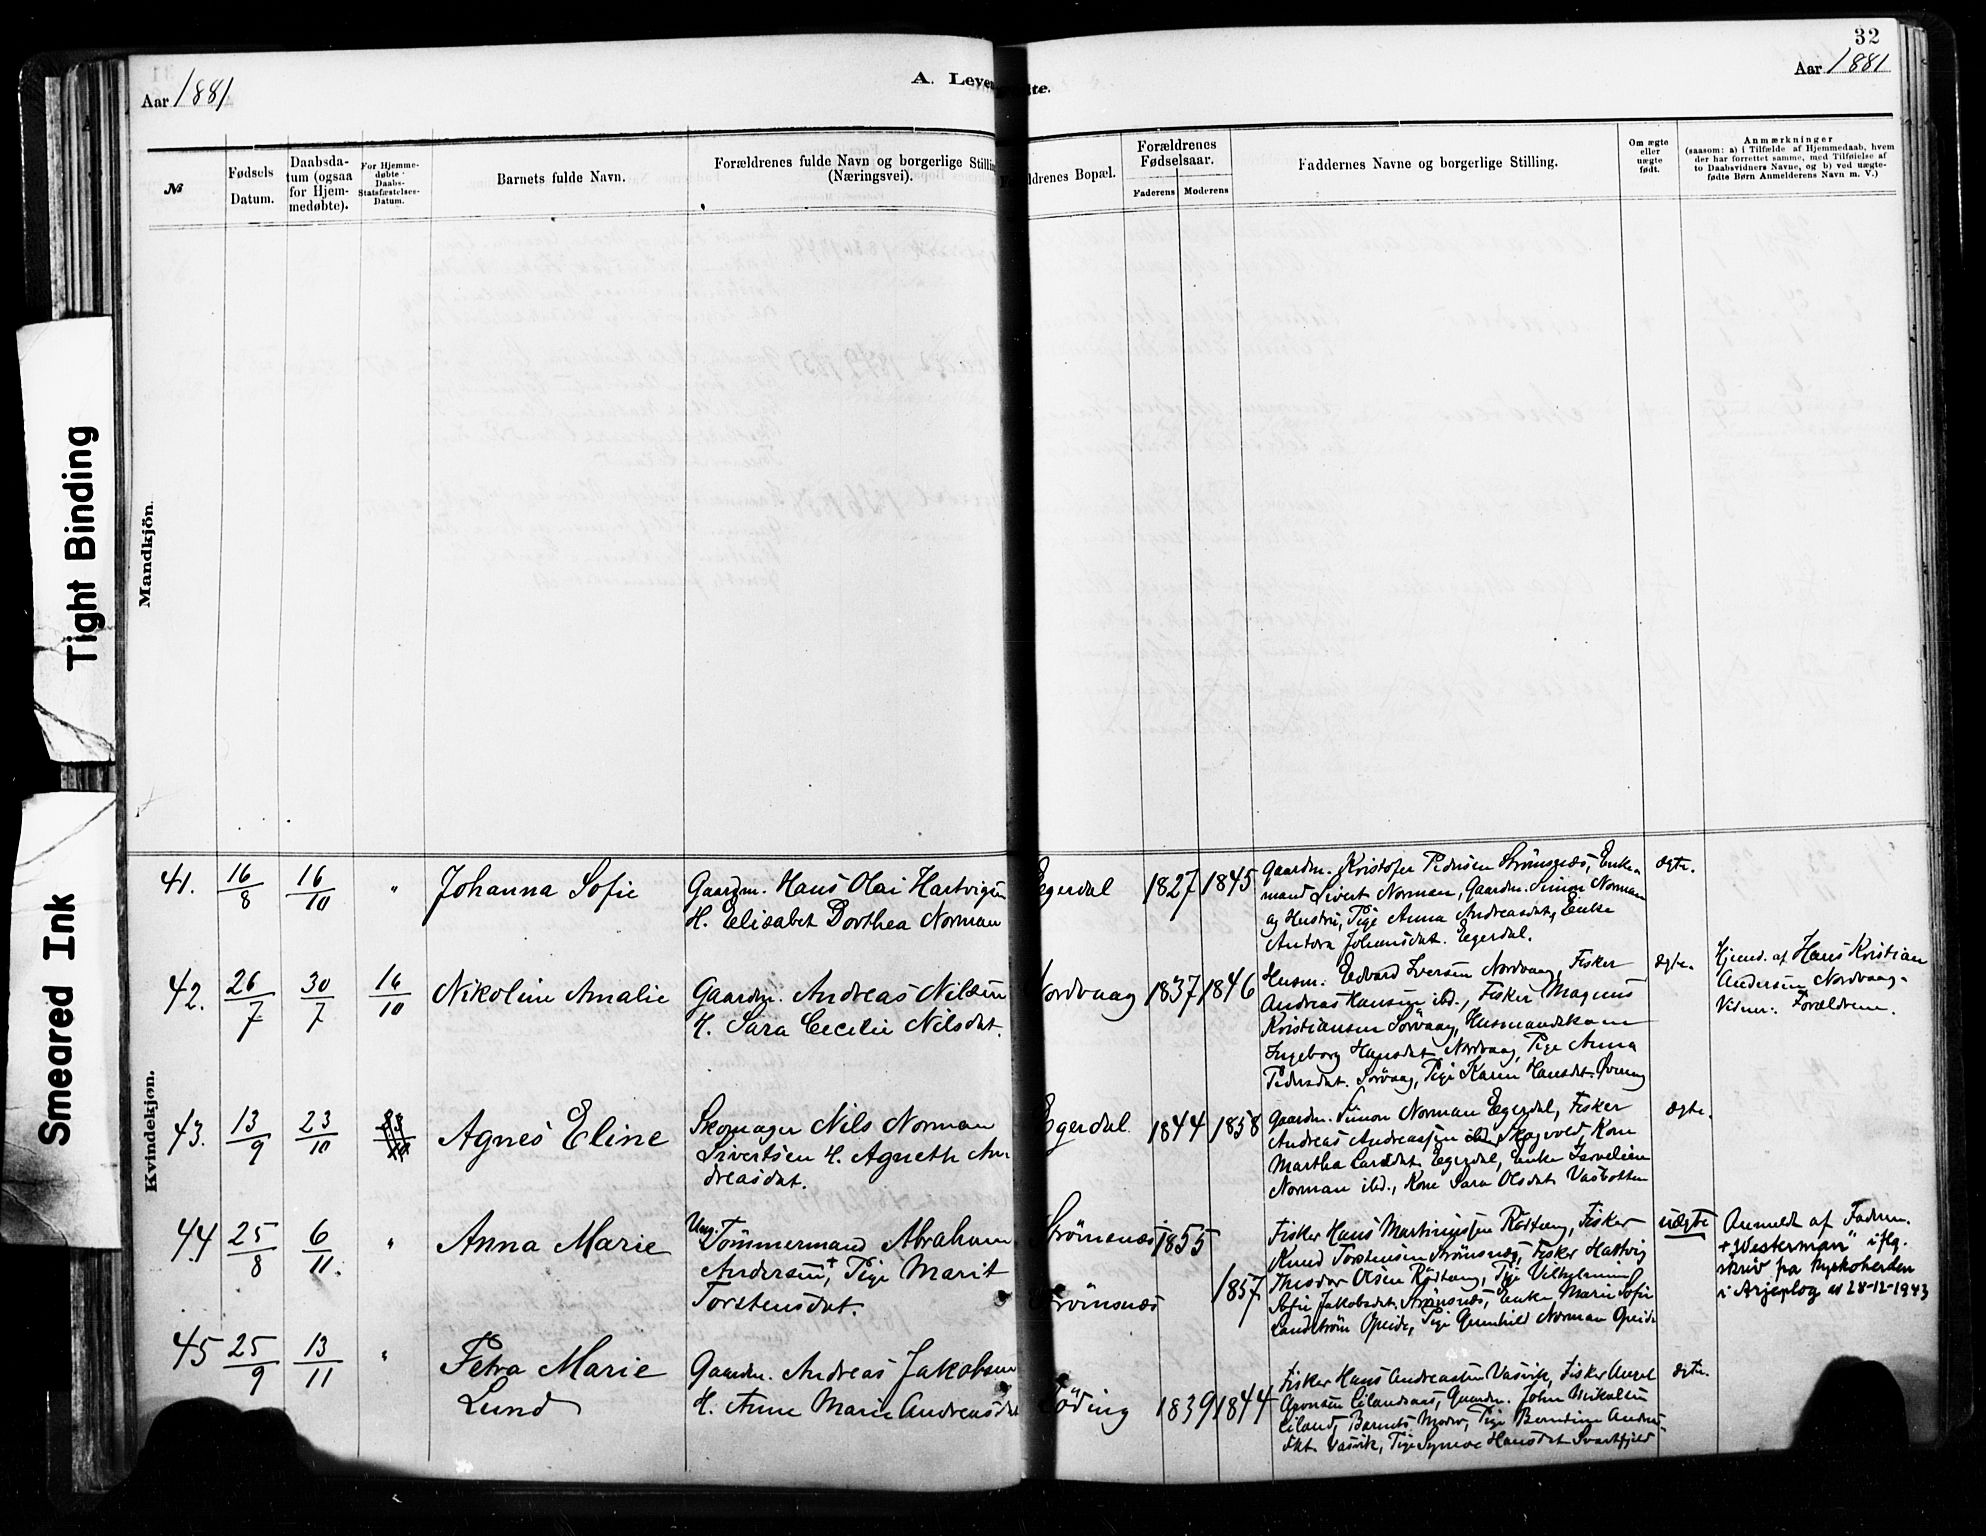 32
Aar 1881
A. Leve
dte.
Aar 1881
Tight Binding
Smeared Ink
№
Fødsels Datum.
Daabsdatum (ogsaa for Hjemmedøbte).
For Hjemmedøbte Daabs-Statsfæstelses-Datum.
Barnets fulde Navn.
Forældrenes fulde Navn og borgerlige Stilling (Næringsvei).
ldrenes Bopæl.
Forældrenes Fødselsaar.
Faderens
Moderens
Faddernes Navne og borgerlige Stilling.
Om ægte eller uægte født.
Anmærkninger
(saasom: a) i Tilfælde af Hjemmedaab, hvem
der har forrettet samme, med Tilføielse af
to Daabsvidners Navne, og b) ved uægte-
fødte Børn Anmelderens Navn m. V.)
Mandkjön.
Kvindekjøn.
41. 16/8 16/10 " Johanna Sofie
Gaardm. Hans Olai Hartvigsen
H. Elisabet Dorthea Norman
Egerdal 1827 1845
Gaardm. Kristofer Pedersen Strömsnæs, Enke-
mand Sivert Norman, Gaardm. Simon Norman
og Hustru, Pige Anna Andreasdat, Enke
Antora Johansdat. Egerdal.
ægte.
42. 26/7 30/7 16/10 Nikoline Amalie
Gaardm. Andreas Nilsen
H. Sara Cecelie Nilsdat.
Nordvaag 1837 1846
Husm. Edvard Iversen Nordvaag, Fisker
Andreas Hansen ibd., Fisker Magnus
Kristiansen Sörvaag, Husmandskone
Ingeborg Hansdat Nordvaag, Pige Anna
Pedersdat. Sörvaag, Pige Karen Hansdat.
ægte.
Hjemd. af Hans Kristian
Andersen Nordvaag.
Vidner: Forældrene.
43. 13/9 23/10 Agnes Eline
Skomager Nils Norman
Sivertsen H. Agneth An-
dreasdat.
Egerdal 1844 1858
Gaardm. Simon Norman Egerdal, Fisker
Andreas Andreassen Skogvold, Kone
Martha Larsdat. Egerdal, Enke
Norman ibd., Kone Sara Olsdat Vasbotten
ægte.
44 25/8 6/11. " Anna Marie
Ung. Tömmermand Abraham
Andersen,+ Pige Marit
Torstensdat.
Strömsnæs 1855
Strömsnæs 1857
Fisker Hans Martinussen Rödtang, Fisker
Knud Torstensen Strömsnæs, Fisker Hartvig
Theodor Olsen Rödtang, Pige Vilhelmine
Sofie Jakobsdat. Strömsnæs, Enke Marie Sofie
Landström Opeide, Pige Gunhild Norman Opeide
uægte
Anmeldt af Faderen.
+ „Westerman" iflg.
skriv fra kyrkoherden
i Arjeplog av 28-12-1943
45 25/9 13/11 " Petra Marie
Lund
Gaardm. Andreas Jakobsen
H. Anne Marie Andreasdat
Föding 1839 1844
Fisker Hans Andreassen Vasvik, Fisker Angel
Aronsen Gaardm. John Mikalsen
Eiland, Barnets Moder, Pige Berntine Andreas-
dat. Vasvik, Pige Hansdat Svartfjeld
ægte.